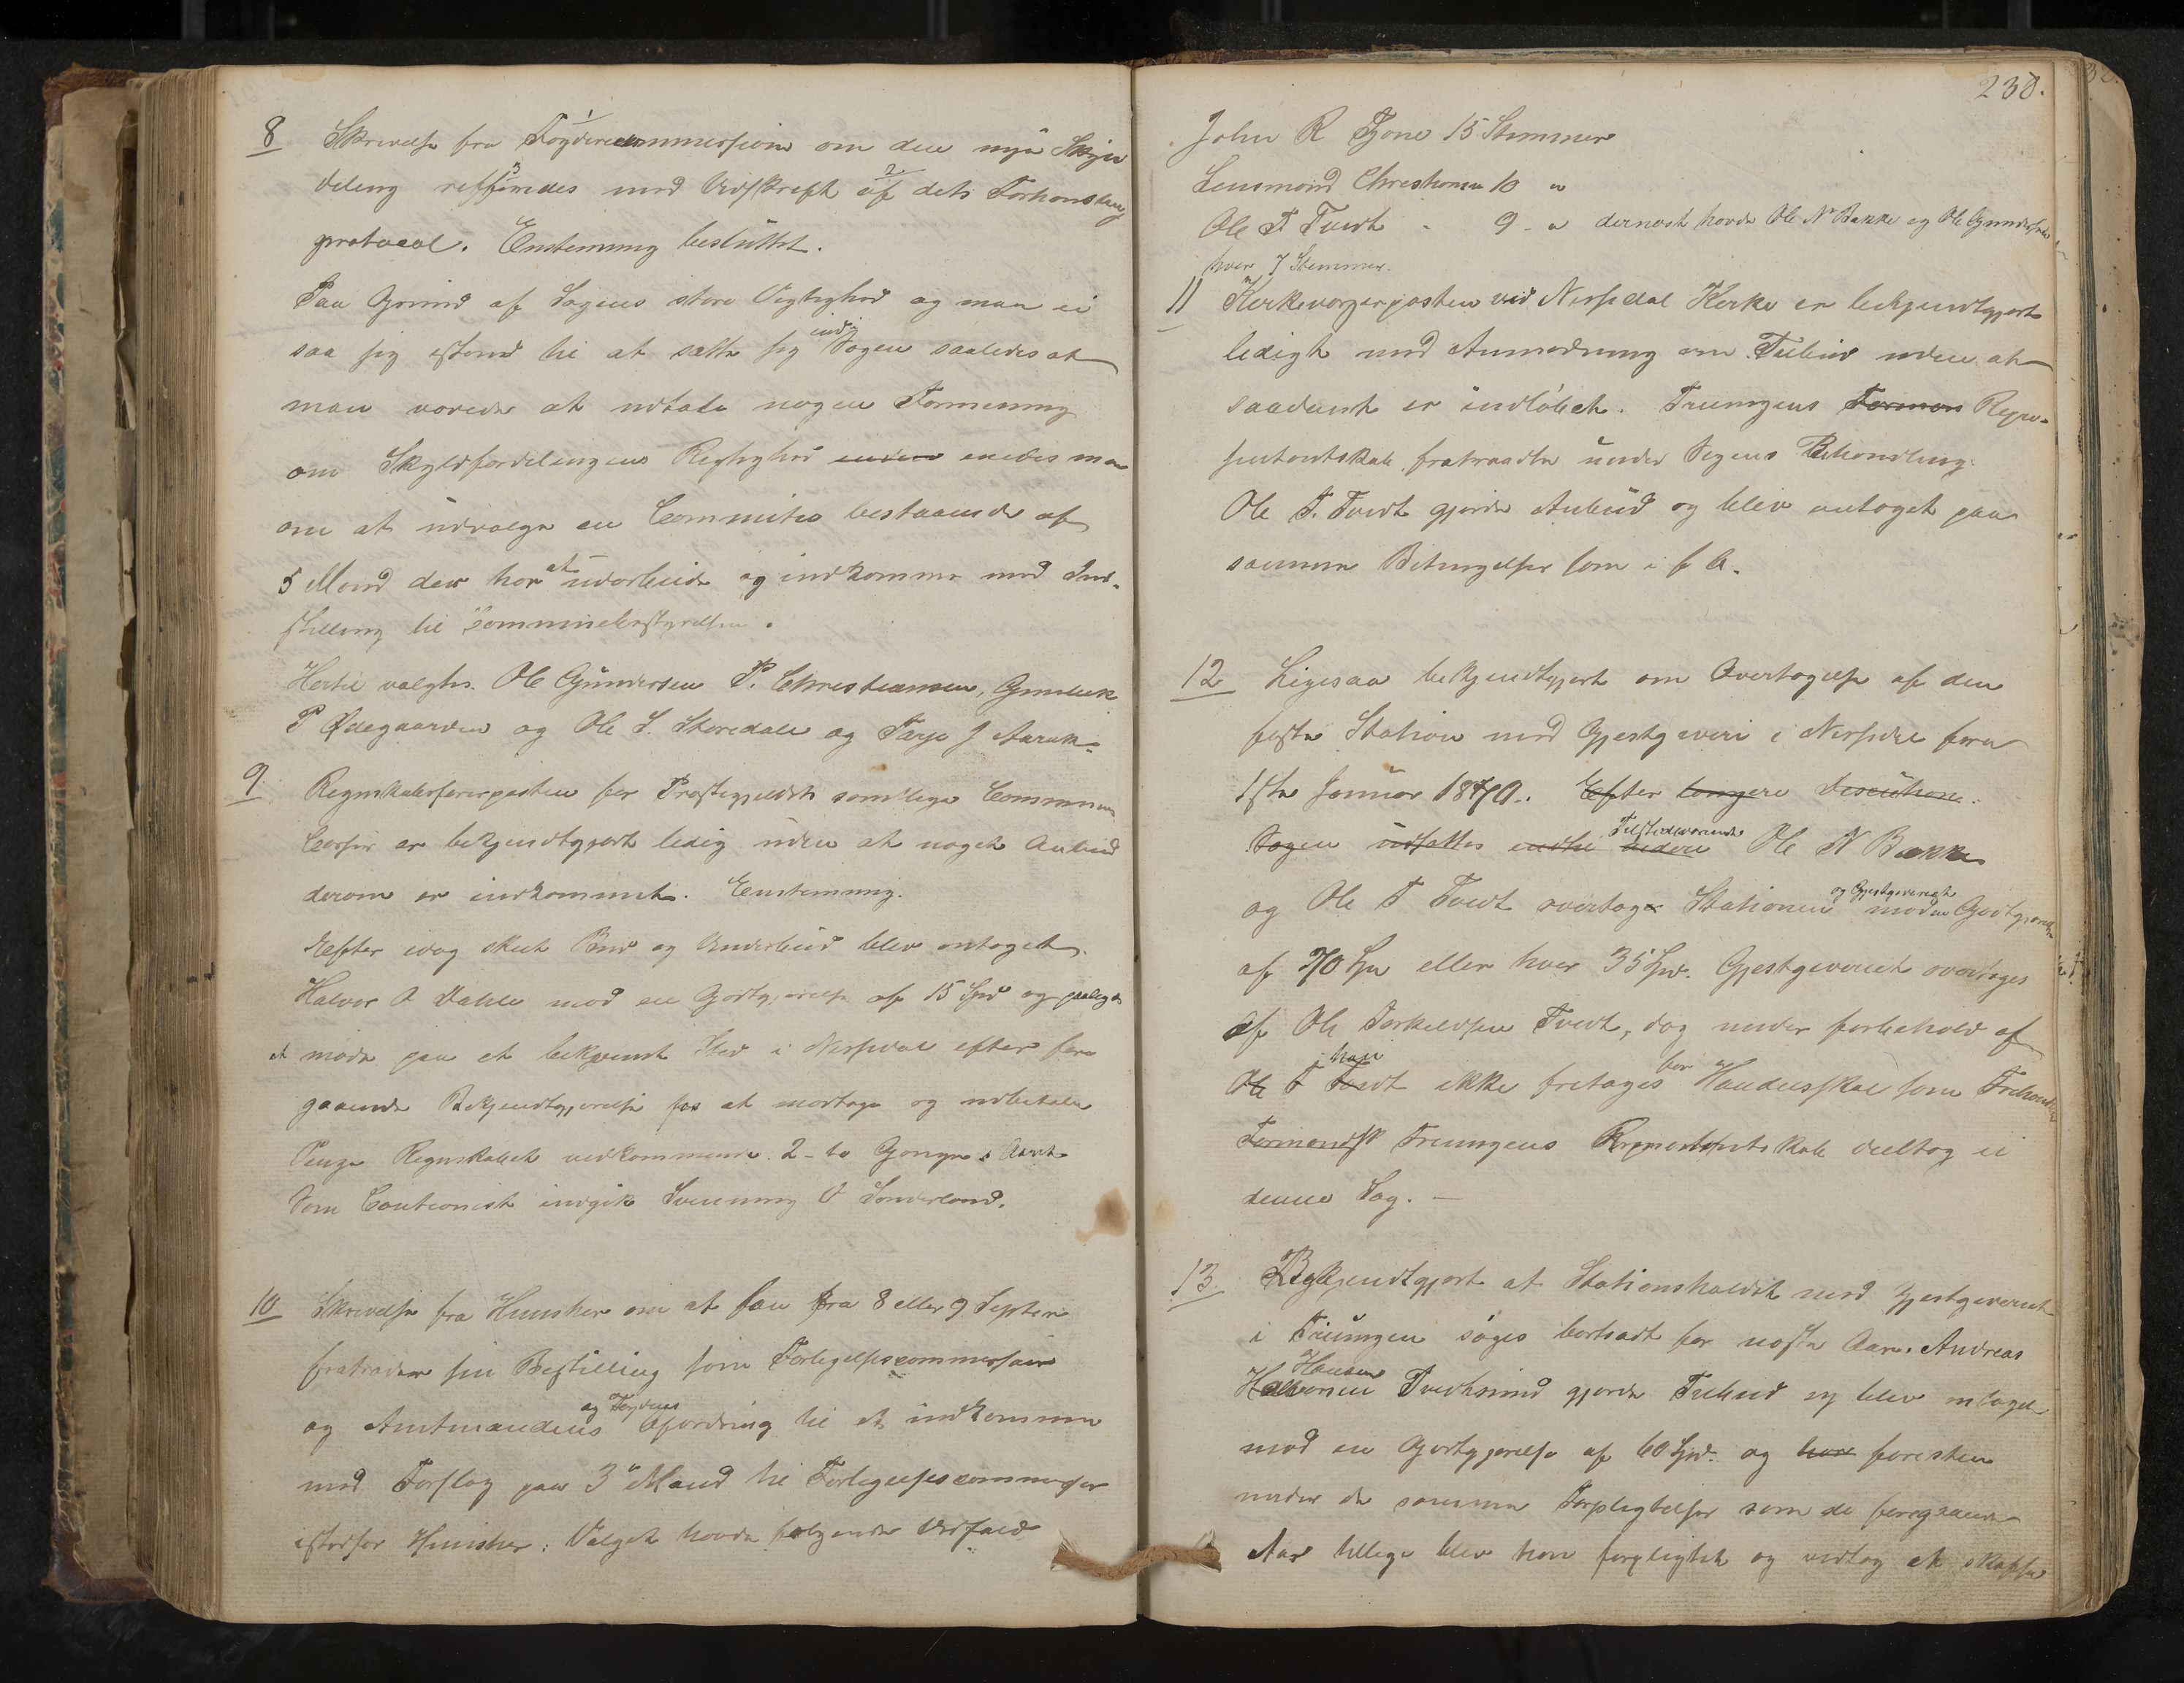 8 Skrivelse fra Fogderiecommissionen om den nye Skyld
deling refereredes med Udskrift af dets Forhandlings
protocol. Enstemmig besluttet.
Paa Grund af Sagens store Vigtighed og man ei
saa sig istand til at sætte sig ind i Sagen saaledes at
man vovede at udtale nogen Formening
om Skyldfordelingens Rigtighed enedes man
om at udvælge en Committe bestaaende af
5 Mænd der har at udarbeide og indkomme med Ind-
stilling til Communebestyrelsen.
Hertil valgtes Ole Gundersen P. Christiansen, Gunleik
P Ødegaarden og Ole S. Storedale og Tarje J Aarak
9 Regnskabsførerposten for Præstegjeldets samtlige Commune
Casser er bekjendtgjort ledig uden at noget Anbud
derom er indkommet. Enstemmig.
Efter idag skeet Bud og Underbud blev antaget
Halvor O Dahle mod en Godtgjørelse af 15 Spd og paalegges
at møde paa et bekvemt Sted i Nissedal efter fore
gaaende Bekjendtgjørelse for at modtage og udbetale
Penge Regnskabet vedkommende 2-to Gange i Aaret
Som Cautionist indgik Svenning O Sønderland.
10 Skrivelse fra Hunsher om at faa fra 8 eller 9 Septem
fratræde sin Bestilling som Forligelsescommissær
og Amtmandens og Fogdens Opfordring til at indkomme
med Forslag paa 3 Mand til Forligelsescommissær
istedfor Hunsher: Valget havde følgende Udfald
238.
John R Tjone 15 Stemmer
Lensmand Christiansen 10 "
Ole T Tvedt - 9 - " dernæst havde Ole N Bakke og Ole Gundersen
hver 7 Stemmer.
11 Kirkeværgerposten ved Nissedal Kirke er bekjendtgjort
ledigt med Anmodning om Tilbud uden at
saadant er indløbet. Treungens Forman Repre-
sentantskab fratraadte under Sagens Behandling
Ole T. Tvedt gjorde Anbud og blev antaget paa
samme Betingelser som i f A.
12 Ligesaa bekjendtgjort om Overtagelse af den
faste Station med Gjestgiveri i Nissedal fra
1ste Januar 1870. Efter længere Discution.
Sagen udsættes indtil videre Tilstedeværende Ole N Bakke
og Ole T Tvedt overtage Stationen og Gjestgiveriet mod en Godtgjørelse
af 70 Spd eller hver 35 Spd. Gjestgiveriet overtages
af Ole Torkeldsen Tvedt, dog under forbehold af
Ole T Tvedt han ikke fratages for Handelsskat som Frihand
Formandsk Treungens Representantskab deeltog ei
denne Sag. —
13. Bekjendtgjort at Stationsholdet med Gjestgiveriet
i Treungen søges bortsadt for næste Aar. Andreas
Halvorsen Hansen Tvedtsund gjorde Tilbud og blev antaget
mod en Godtgjørelse af 60 Spd. og han foresten
under de samme Forpligtelser som de foregaaende
Aar tillige blev han forpligtet og vedtog at skaffe